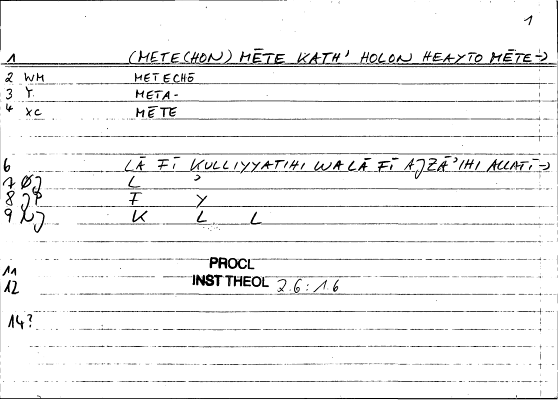 1
1 (METECHON) MĒTE KATH' HOLON HEAYTO MĒTE→
2 WM METECHŌ
3 Y. META-
4 XC MĒTE
6 LĀ FĪ KULLIYYATIHI WALĀ FĪ AJZĀ'IHI ALLATĪ→
7 ØJ L ʾ
8 JP F Y
9 NJ K L L
11 PROCL
12 INST THEOL 2.6:1.6
14?